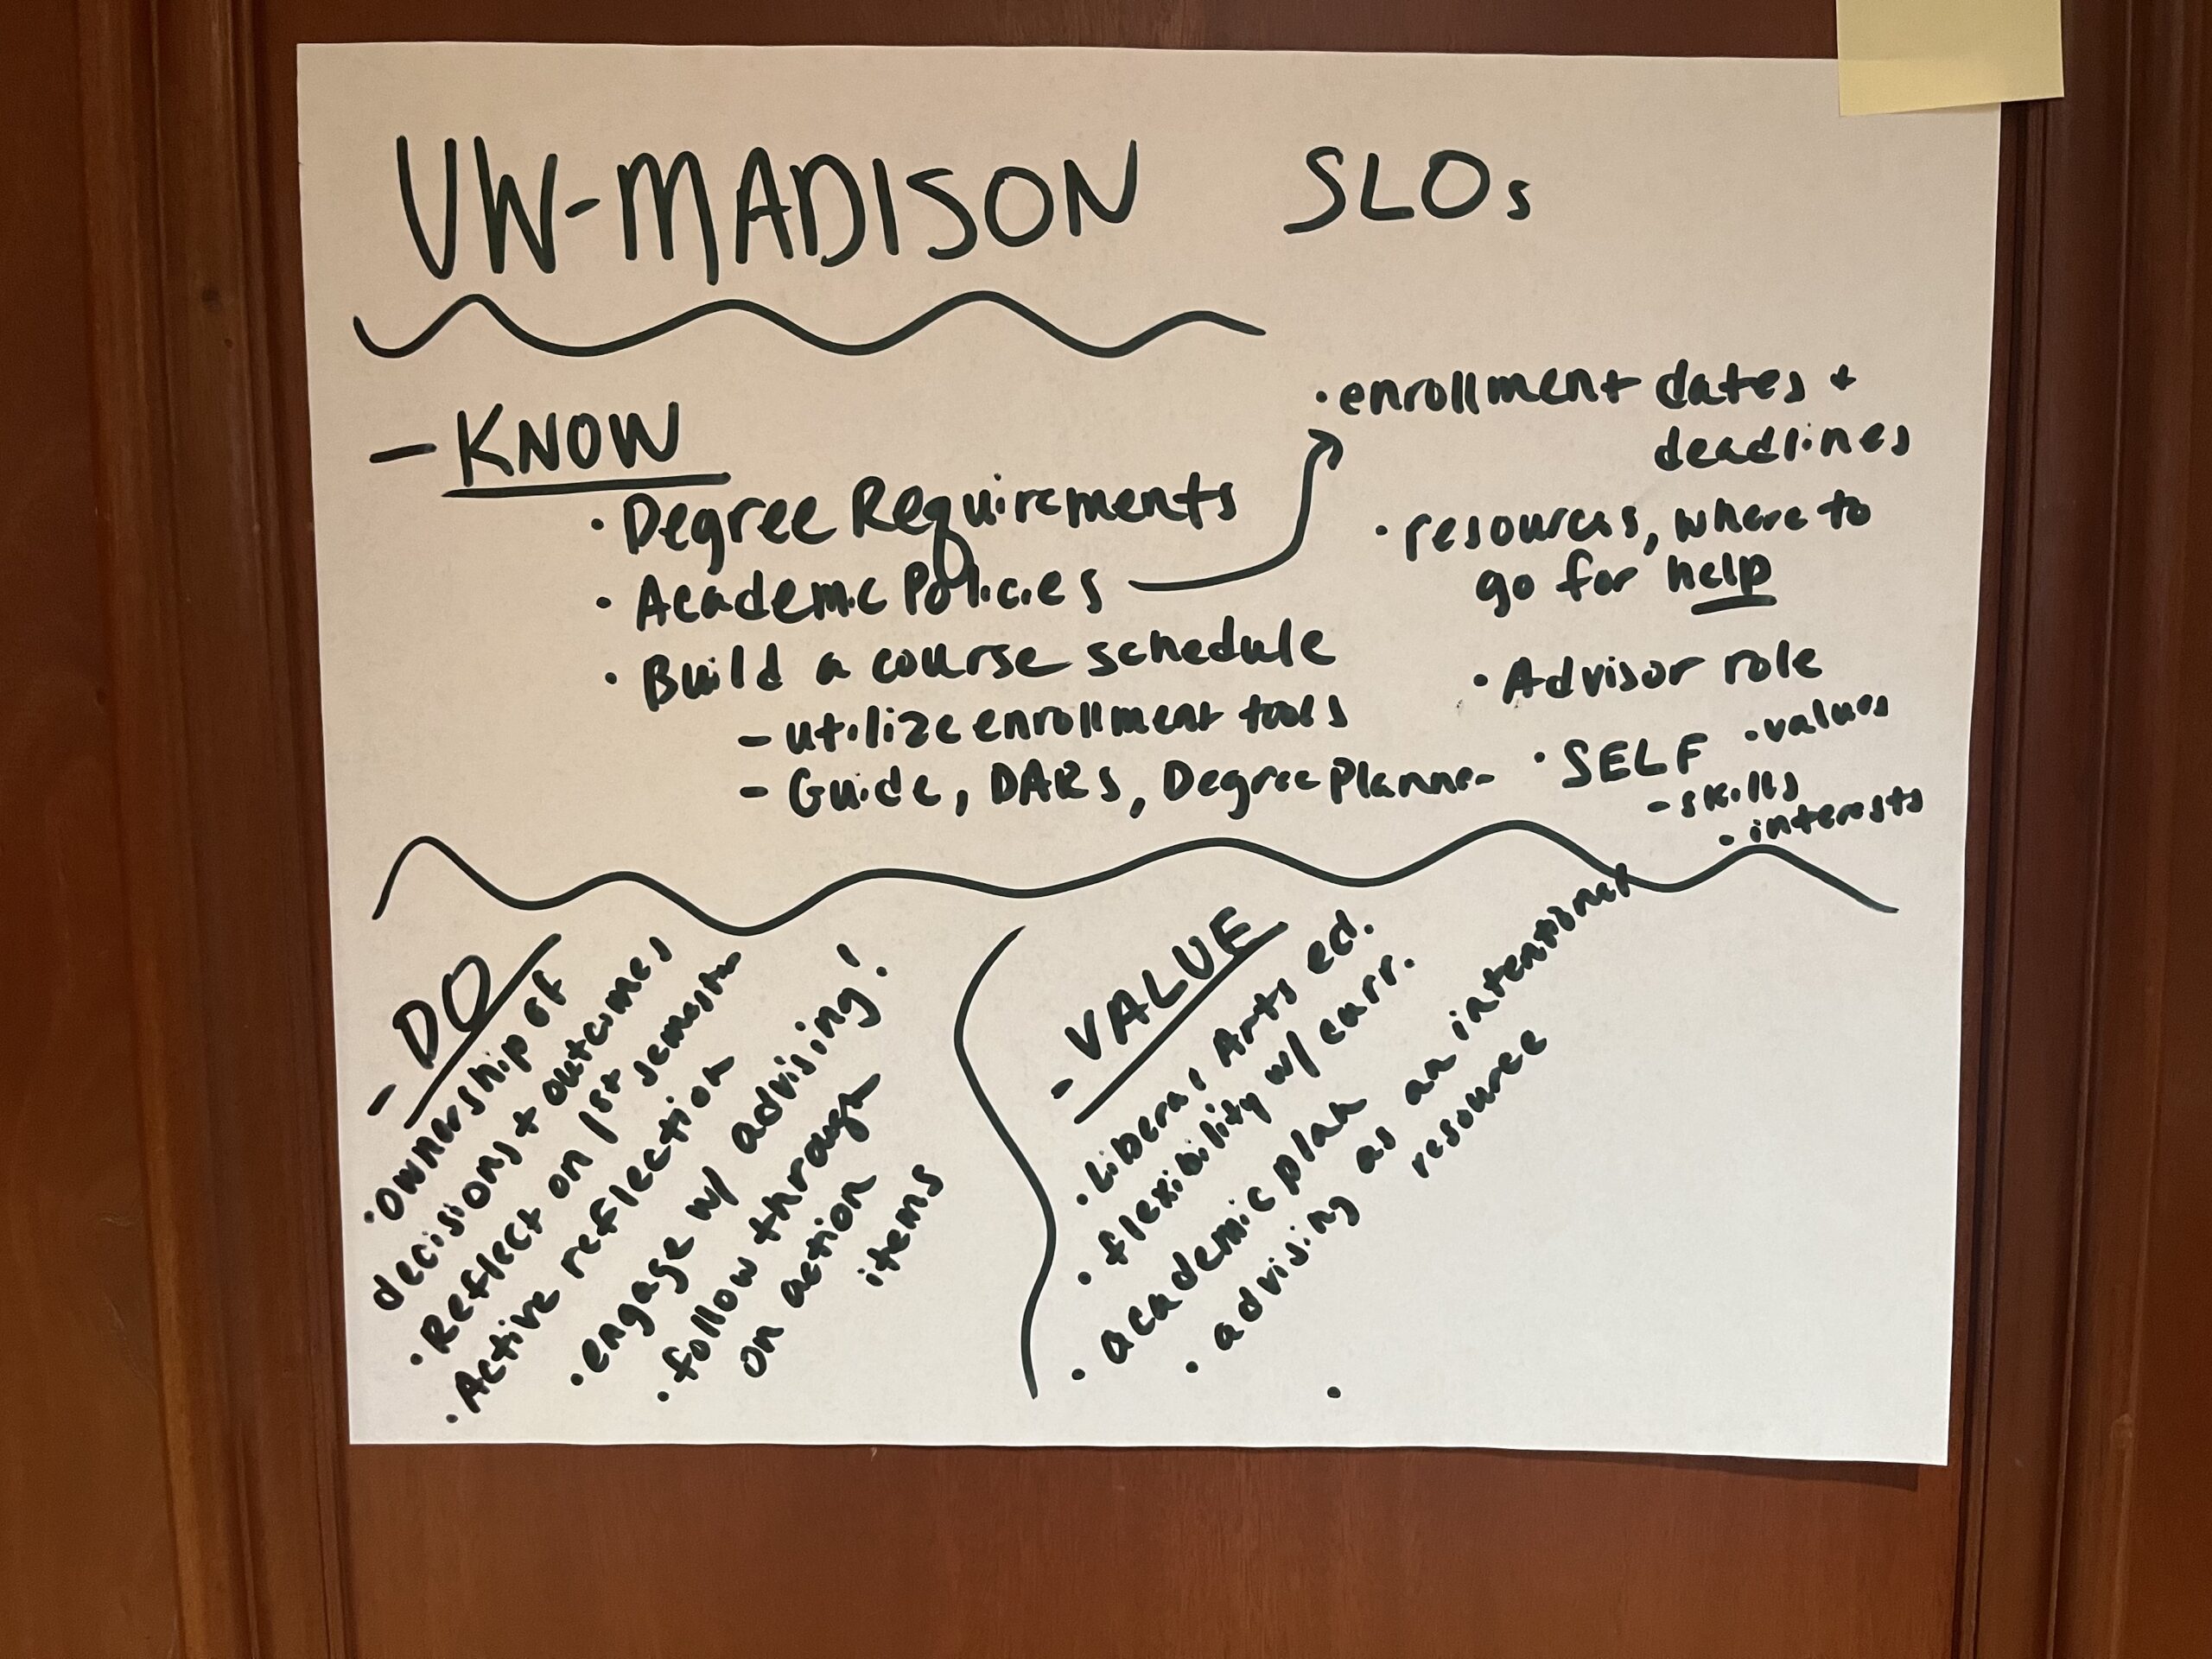 UW-MADISON SLOs
- KNOW
· Degree Requirements
· Academic Policies
· Build a course schedule
- utilize enrollment tools
- Guide, DARS, Degree Planner
· enrollment dates +
deadlines
· resources, where to
go for help
· Advisor role
· SELF · values
- skills
· interests
- DO
· Ownership of
decisions + outcomes
· Reflect on 1st semester
· Active reflection
· engage w/ advising!
· follow through
on action
items
- VALUE
· Liberal Arts ed.
· flexibility w/ curr.
· academic plan
· advising as an intentional
resource
·